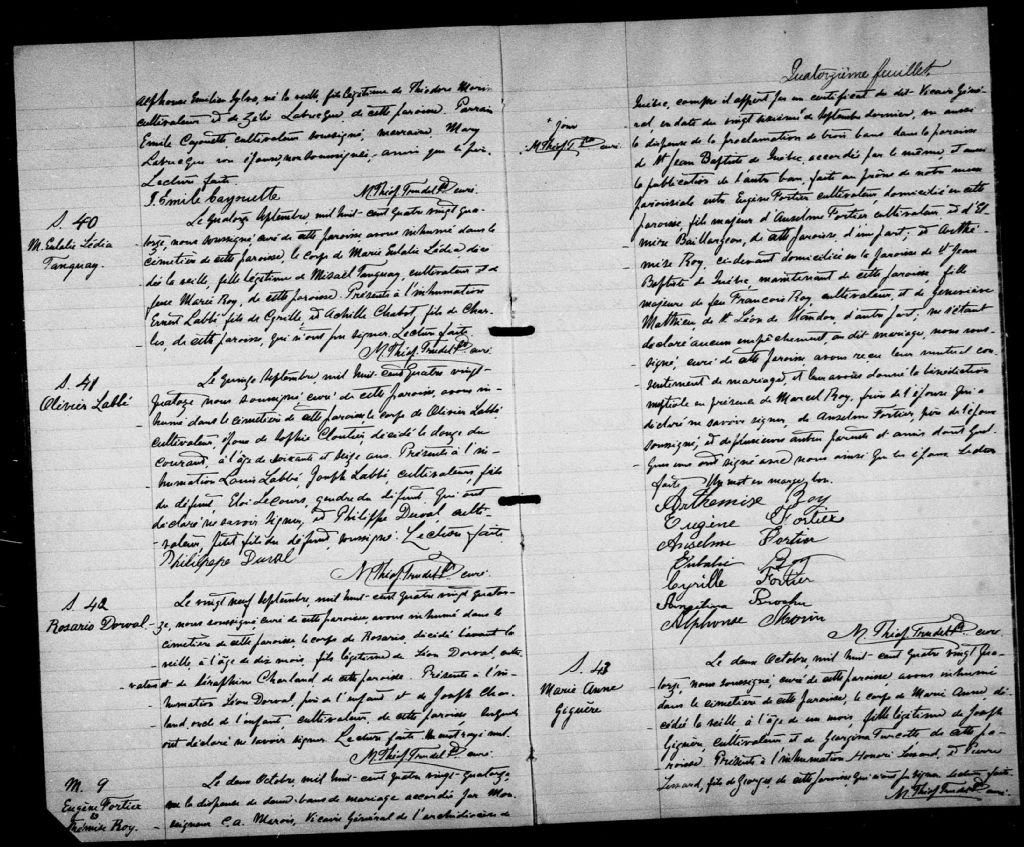 Alphonse Emilien Sylva, né la veille, fils légitime de Théodore Morin
cultivateur et de Zélie Labrecque, de cette paroisse. Parrain
Emile Cayouette cultivateur soussigné, marraine, Mary
Labrecque non épouse, non soussignée, ainsi que le père
Lecture faite.
J. Emile Cayouette
M. Théop. Trudel Ptre curé.
S. 40
M. Eulalie Lédia
Tanguay.
Le quatorze Septembre, mil huit-cent quatre vingt qua-
torze, nous soussigné, curé de cette paroisse avons inhumé dans le
cimetière de cette paroisse, le corps de Marie Eulalie Lédia, décé-
dée la veille, fille légitime de Misaël Tanguay, cultivateur et de
feue Marie Roy, de cette paroisse. Présents à l'inhumation
Ernest Labbé fils de Cyrille, et Achille Chabot, fils de Char-
les, de cette paroisse, qui n'ont pu signer. Lecture faite.
M. Théop. Trudel Ptre curé.
S. 41
Olivier Labbé
Le quinze Septembre, mil huit-cent quatre vingt-
quatorze nous soussigné curé de cette paroisse, avons in-
humé dans le cimetière de cette paroisse le corps de Olivier Labbé
cultivateur, époux de Sophie Cloutier décédé le douze du
courant, à l'âge de soixante et seize ans. Présents à l'in-
humation Louis Labbé, Joseph Labbé, cultivateurs, fils
du défunt, Eloi Lecours, gendre du défunt. Qui ont
déclaré ne savoir signer, et Philippe Duval culti-
vateur, petit fils du défunt, soussigné. Lecture faite
Philippe Duval
M. Théop. Trudel Ptre curé.
S. 42
Rosario Dorval
Le vingt neuf Septembre, mil huit-cent quatre vingt quator-
ze, nous soussigné curé de cette paroisse, avons inhumé dans le
cimetière de cette paroisse, le corps de Rosario, décédé l'avant la
veille, à l'âge de dix mois, fils légitime de Léon Dorval, culti-
vateur et de Séraphine Charland de cette paroisse. Présents à l'in-
humation Léon Dorval, père de l'enfant et de Joseph Char-
land oncle de l'enfant, cultivateur, de cette paroisse, lesquels
ont déclaré ne savoir signer. Lecture faite. Un mot rayé nul.
M. Théop. Trudel Ptre curé.
M. 9
Eugène Fortier
&
Thémise Roy.
Le deux Octobre mil huit-cent quatre vingt-quatorze
vu la dispense de deux bans de mariage accordé par Mon-
seigneur C. A. Marois, Vicaire Général de l'archidiocèse de
Quatorzième feuillet
+ pour
M. Théop. T. Ptre curé.
Québec, comme il appert par un certificat du dit Vicaire Géné-
ral, en date du vingt sixième de Septembre dernier, vu aussi
la dispense de la proclamation de trois bans dans la paroisse
de St Jean Baptiste de Québec, accordée par le même, et aussi
la publication de l'autre ban, faite au prône de notre messe
paroissiale entre Eugène Fortier cultivateur, domicilié en cette
paroisse, fils majeur d'Anselme Fortier cultivateur, et d'El-
mire Baillargeon, de cette paroisse, d'une part; et Arthé-
mise Roy, ci-devant domiciliée en la paroisse de St Jean
Baptiste de Québec, maintenant de cette paroisse fille
majeure de feu François Roy, cultivateur, et de Geneviève
Mathieu, de St Léon de Standon, d'autre part; ne s'étant
déclaré aucun empêchement au dit mariage, nous sous-
signé, curé de cette paroisse avons reçu leur mutuel con-
sentement de mariage, et leur avons donné la bénédiction
nuptiale en présence de Marcel Roy, frère de l'épouse qui a
déclaré ne savoir signer, de Anselme Fortier, père de l'époux
soussigné, et de plusieurs autres parents et amis dont quel-
ques uns ont signé avec nous ainsi que les époux. Lecture
faite. Un mot en marge bon.
Arthemise Roy
Eugène Fortier
Anselme Fortier
Eulalie Roy
Cyrille Fortier
Angelina Brochu
Alphonse Morin
M. Théop. Trudel Ptre curé
S. 43
Marie Anne
Giguère
Le deux Octobre, mil huit-cent quatre vingt qua-
torze, nous soussigné, curé de cette paroisse avons inhumé
dans le cimetière de cette paroisse, le corps de Marie Anne, dé-
cédée la veille à l'âge de un mois, fille légitime de Joseph
Giguère, cultivateur et de Georgina Turcotte de cette pa-
roisse. Présents à l'inhumation Honoré Lessard, et Pierre
Lessard, fils de Georges, de cette paroisse, qui n'ont pu signer. Lecture faite.
M. Théop. Trudel Ptre curé.